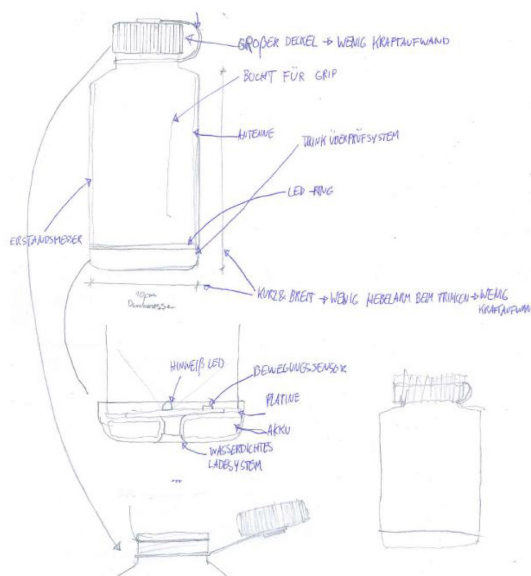 GROßER DECKEL → WENIG KRAFTAUFWAND
BUCHT FÜR GRIP
ANTENNE
TRINKÜBERPRÜFSYSTEM
LED-RING
KURZ & BREIT → WENIG HEBELARM BEIM TRINKEN → WENIG
KRAFTAUFWAND
HINWEIß LED
BEWEGUNGSSENSOR
PLATINE
AKKU
WASSERDICHTES
LADESYSTEM
...